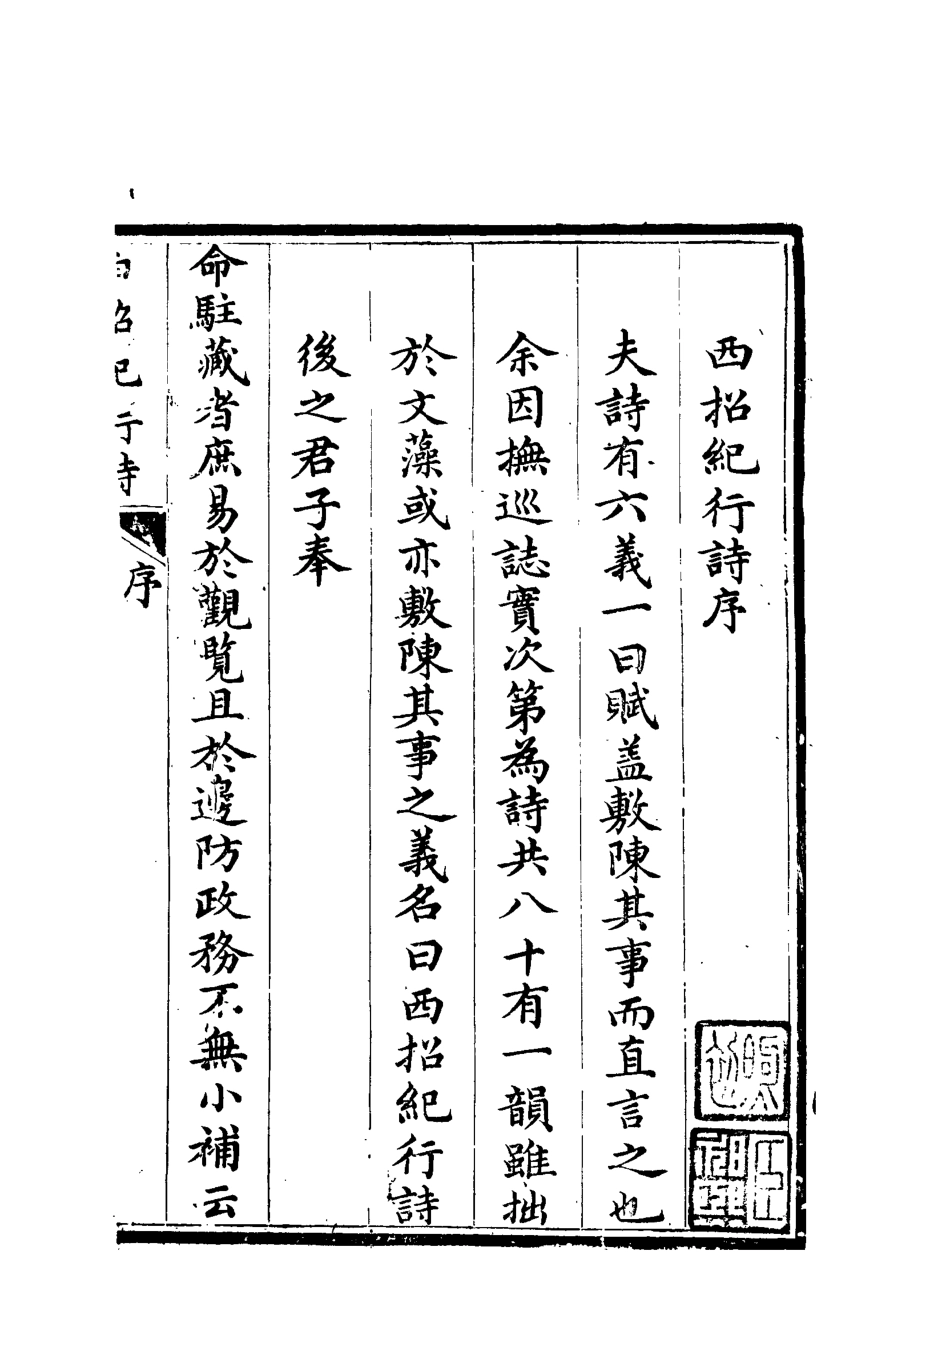 西招紀行詩序
夫詩有六義一曰賦盖敷陳其事而直言之也
余因撫巡誌實次第為詩共八十有一韻雖拙
於文藻或亦敷陳其事之義名曰西招紀行詩
後之君子奉
命駐藏者庶易於觀覽且於邊防政務不無小補云
西招紀行詩 序